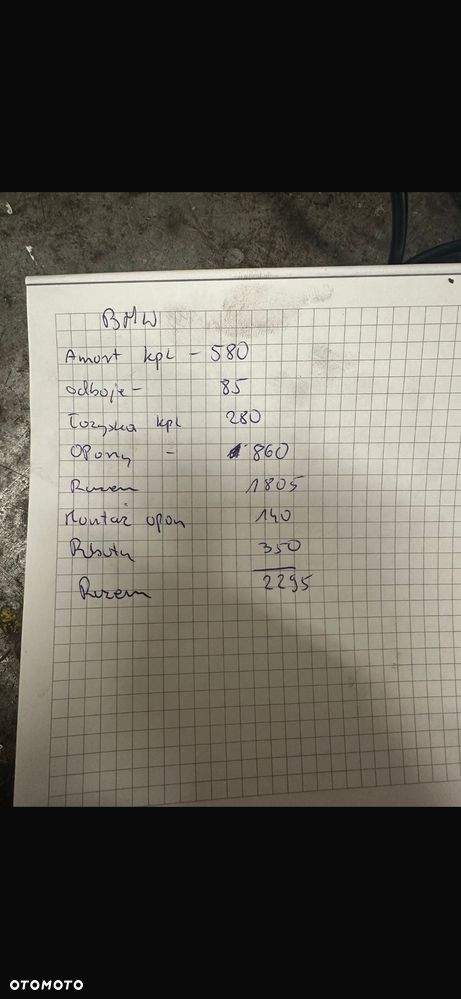 BMW
Amort kpl - 580
odboje - 85
Łożyska kpl 280
Opony - 860
Razem 1805
Montaż opon 140
Robota 350
Razem 2295
OTOMOTO